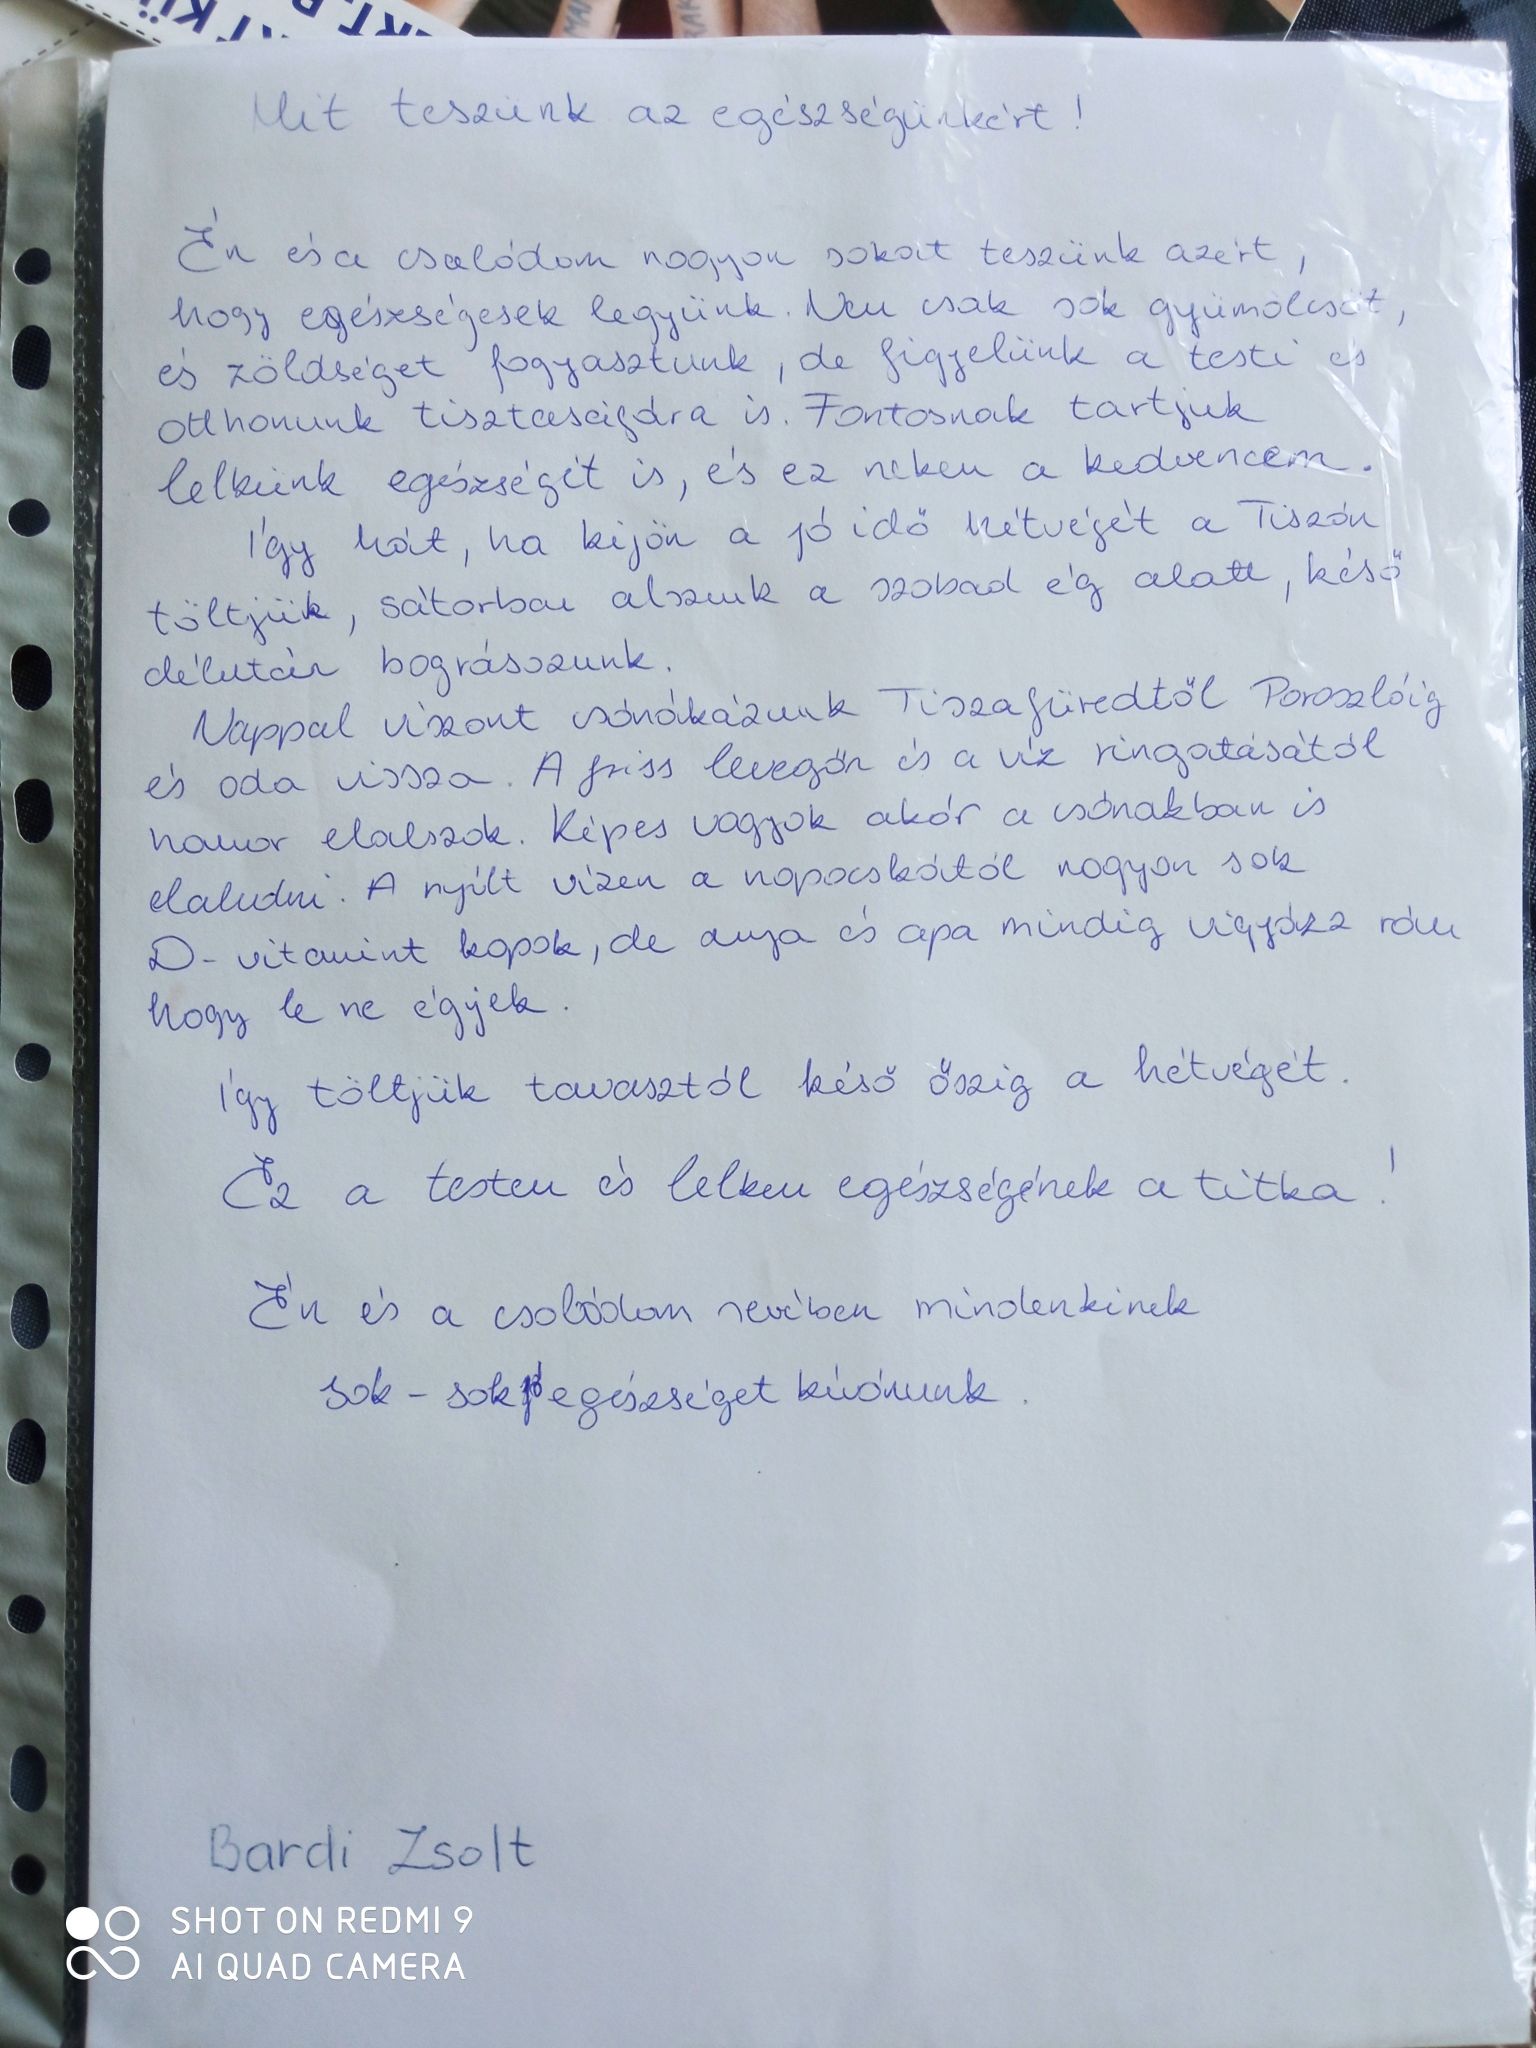 Mit teszünk az egészségünkért!
Én és a családom nagyon sokat teszünk azért,
hogy egészségesek legyünk. Nem csak sok gyümölcsöt,
és zöldséget fogyasztunk, de figyelünk a testi és
otthonunk tisztaságára is. Fontosnak tartjuk
lelkünk egészségét is, és ez nekem a kedvencem.
Így hát, ha kijön a jó idő hétvégét a Tiszán
töltjük, sátorban alszunk a szabad ég alatt, késő
délután bográsszunk.
Nappal viszont csónakázunk Tiszafüredtől Poroszlóig
és oda vissza. A friss levegőn és a víz ringatásától
hamar elalszok. Képes vagyok akár a csónakban is
elaludni. A nyílt vízen a napocskától nagyon sok
D-vitamint kapok, de anya és apa mindig vigyázz rám
hogy le ne égjek.
Így töltjük tavasztól késő őszig a hétvégét.
Ez a testem és lelkem egészségének a titka!
Én és a családom nevében mindenkinek
sok-sok jó egészséget kívánunk.
Bardi Zsolt
SHOT ON REDMI 9
AI QUAD CAMERA